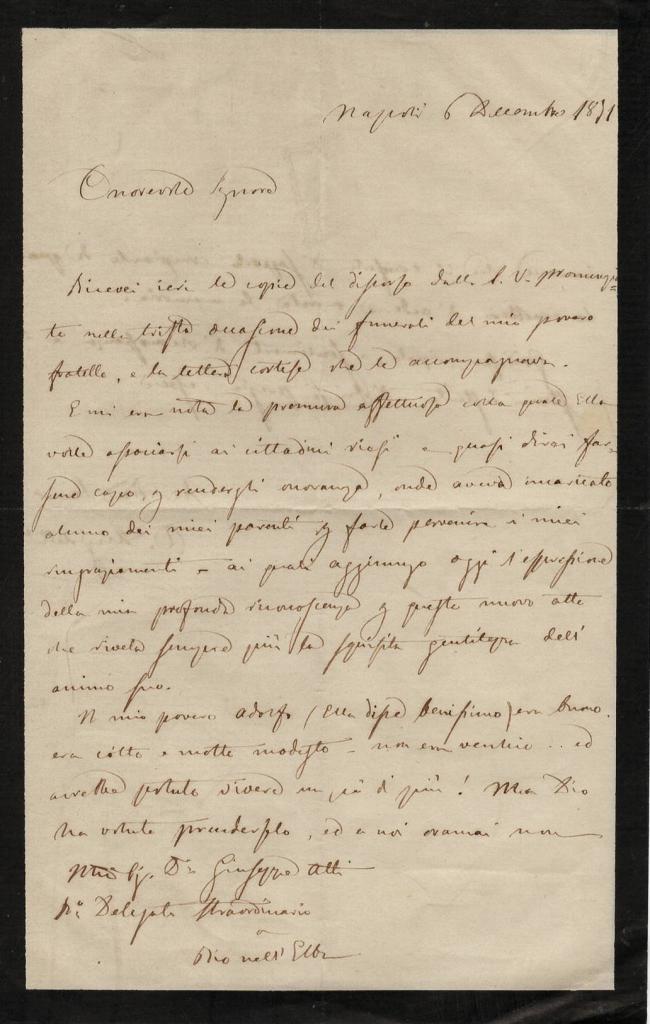 Napoli 6 Decembre 1871
Onorevole Signore
Ricevei ieri le copie del discorso dalla S. V. pronunzia=
to nella trista occasione dei funerali del mio povero
fratello, e la lettera cortese che le accompagnava.
E mi era nota la premura affettuosa colla quale Ella
volle associarsi ai cittadini riesi e quasi direi far
sene capo, p rendergli onoranza, onde aveva incaricato
alcuno dei miei parenti p farle pervenire i miei
ringraziamenti – ai quali aggiungo oggi l'espressione
della mia profonda riconoscenza p questo nuovo atto
che rivela sempre più la squisita gentilezza dell'
animo suo.
Il mio povero Adolfo (Ella disse benissimo) era buono,
era colto e molto modesto – non era vecchio .. ed
avrebbe potuto vivere un po' di più! Ma Dio
ha voluto prenderselo, ed a noi oramai non
Sig. Dr Giuseppe
Ro Delegato straordinario
a
Rio nell'Elba